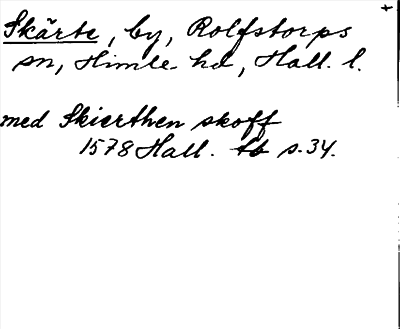 +
Skärte, by, Rolfstorps
sn, Himle hd, Hall. l.
med Skierthen skoff
1578 Hall. tb s. 34.